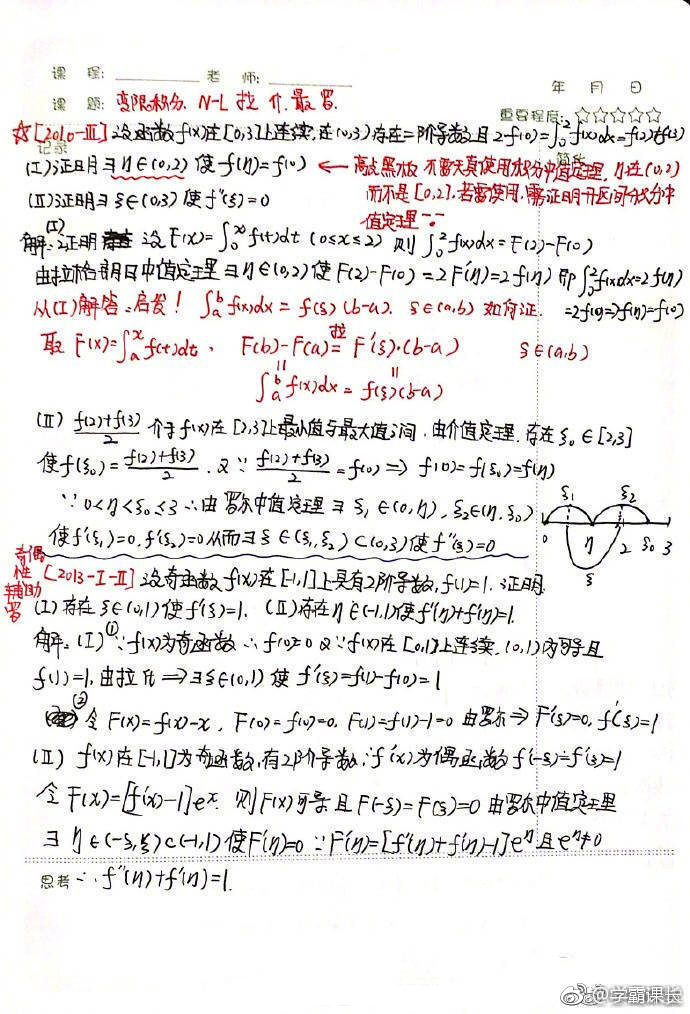 课 程: 老 师:
年 月 日
课 题: 变限积分. N-L 拉 介. 最 罗.
重要程度: ☆☆☆☆☆
☆[2010-Ⅲ] 设函数f(x)在[0,3]上连续,在(0,3)存在二阶导数且 2f(0)=∫₀²f(x)dx=f(2)+f(3)
记录
(Ⅰ)证明∃η∈(0,2) 使 f(η)=f(0) ← 高亮黑板 不要天真使用积分中值定理, η在(0,2)
(Ⅱ)证明∃ξ∈(0,3) 使 f''(ξ)=0 而不是[0,2].若需使用,需证明开区间积分中
值定理
解:(Ⅰ)证明 设 F(x)=∫₀ˣf(t)dt (0≤x≤2) 则 ∫₀²f(x)dx=F(2)-F(0)
由拉格朗日中值定理∃η∈(0,2)使F(2)-F(0)=2F'(η)=2f(η) 即∫₀²f(x)dx=2f(η)
=2f(0)⇒f(η)=f(0)
从(Ⅰ)解答启发! ∫ₐᵇf(x)dx=f(ξ)(b-a). ξ∈(a,b) 如何证.
取 F(x)=∫ₐˣf(t)dt. F(b)-F(a)=拉 F'(ξ)·(b-a) ξ∈(a,b)
∫ₐᵇf(x)dx=f(ξ)(b-a)
(Ⅱ) (f(2)+f(3))/2 介于f(x)在[2,3]上最小值与最大值之间.由介值定理.存在ξ₀∈[2,3]
使f(ξ₀)=(f(2)+f(3))/2. 又∵(f(2)+f(3))/2=f(0)⇒f(0)=f(ξ₀)=f(η)
∵0<η<ξ₀≤3∴由罗尔中值定理∃ξ₁∈(0,η),ξ₂∈(η,ξ₀)
使f'(ξ₁)=0,f'(ξ₂)=0从而∃ξ∈(ξ₁,ξ₂)⊂(0,3)使f''(ξ)=0
ξ₁ ξ₂
0 η 2 ξ₀ 3
ξ
奇偶性辅助罗
[2013-Ⅰ-Ⅱ]设奇函数f(x)在[-1,1]上具有2阶导数,f(1)=1.证明.
(Ⅰ)存在ξ∈(0,1)使f'(ξ)=1. (Ⅱ)存在η∈(-1,1)使f''(η)+f'(η)=1.
解:(Ⅰ)①∵f(x)为奇函数∴f(0)=0又∵f(x)在[0,1]上连续.(0,1)内可导且
f(1)=1.由拉氏⇒∃ξ∈(0,1)使 f'(ξ)=f(1)-f(0)=1
② 令F(x)=f(x)-x, F(0)=f(0)=0, F(1)=f(1)-1=0 由罗尔⇒F'(ξ)=0, f'(ξ)=1
(Ⅱ) f(x)在[-1,1]为奇函数,有2阶导数∴f'(x)为偶函数f'(-ξ)=f'(ξ)=1
令F(x)=[f'(x)-1]eˣ. 则F(x)可导且F(-ξ)=F(ξ)=0 由罗尔中值定理
∃η∈(-ξ,ξ)⊂(-1,1)使F'(η)=0∵F'(η)=[f''(η)+f'(η)-1]e^η且e^η≠0
思考 ∴f''(η)+f'(η)=1.
@学霸课长